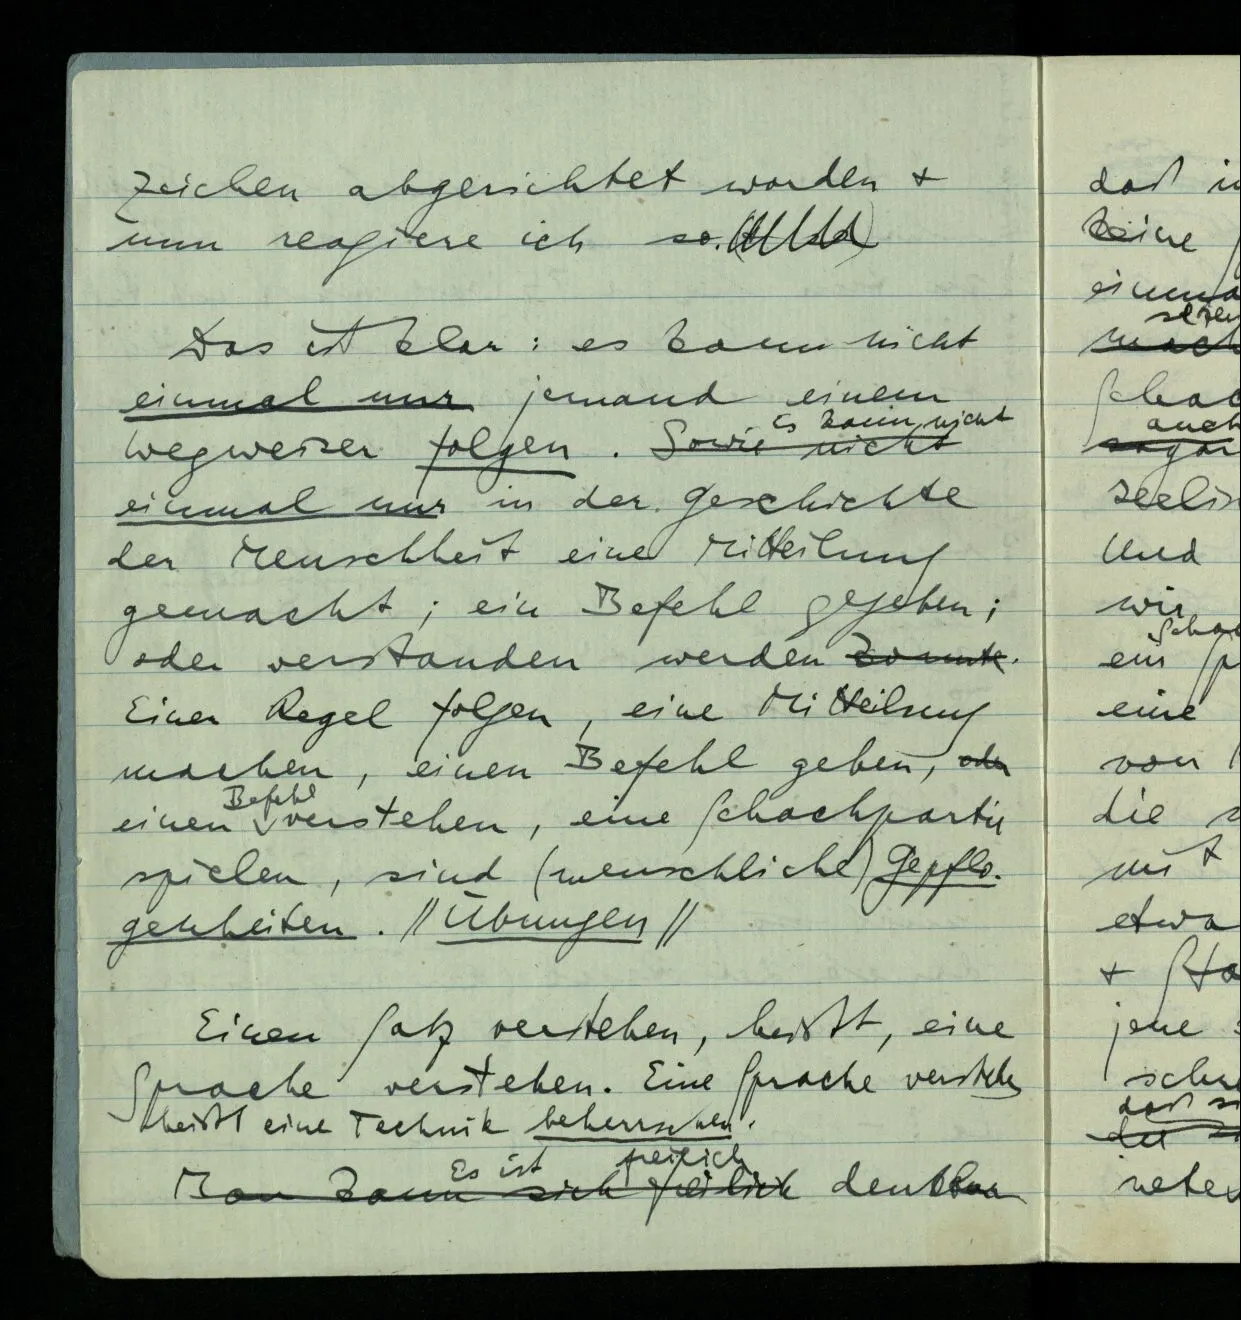 Zeichen abgerichtet worden +
nun reagiere ich so.
Das ist klar: es kann nicht
einmal nur jemand einem
Wegweiser folgen. Sowie nicht
Es kann nicht
einmal nur in der Geschichte
der Menschheit eine Mitteilung
gemacht; ein Befehl gegeben;
oder verstanden werden konnte.
Einer Regel folgen, eine Mitteilung
machen, einen Befehl geben, oder
Befehl
einen verstehen, eine Schachpartie
spielen, sind (menschliche) Gepflo-
genheiten. // Übungen //
Einen Satz verstehen, heißt, eine
Sprache verstehen. Eine Sprache verstehen
heißt eine Technik beherrschen.
Es ist freilich
Man kann sich freilich denkbar
daß
keine
einma
setzen
mach
Schac
auch
sogar
seelis
Und
wir
ein
eine
von
die
mit
etwa
+
jene
schre